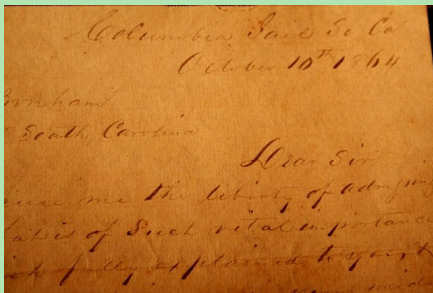 Columbia Jail So Ca
October 10th 1864
Bonham
South Carolina
Dear Sir
me the liberty of
is of Such vital importance
fully explained to you